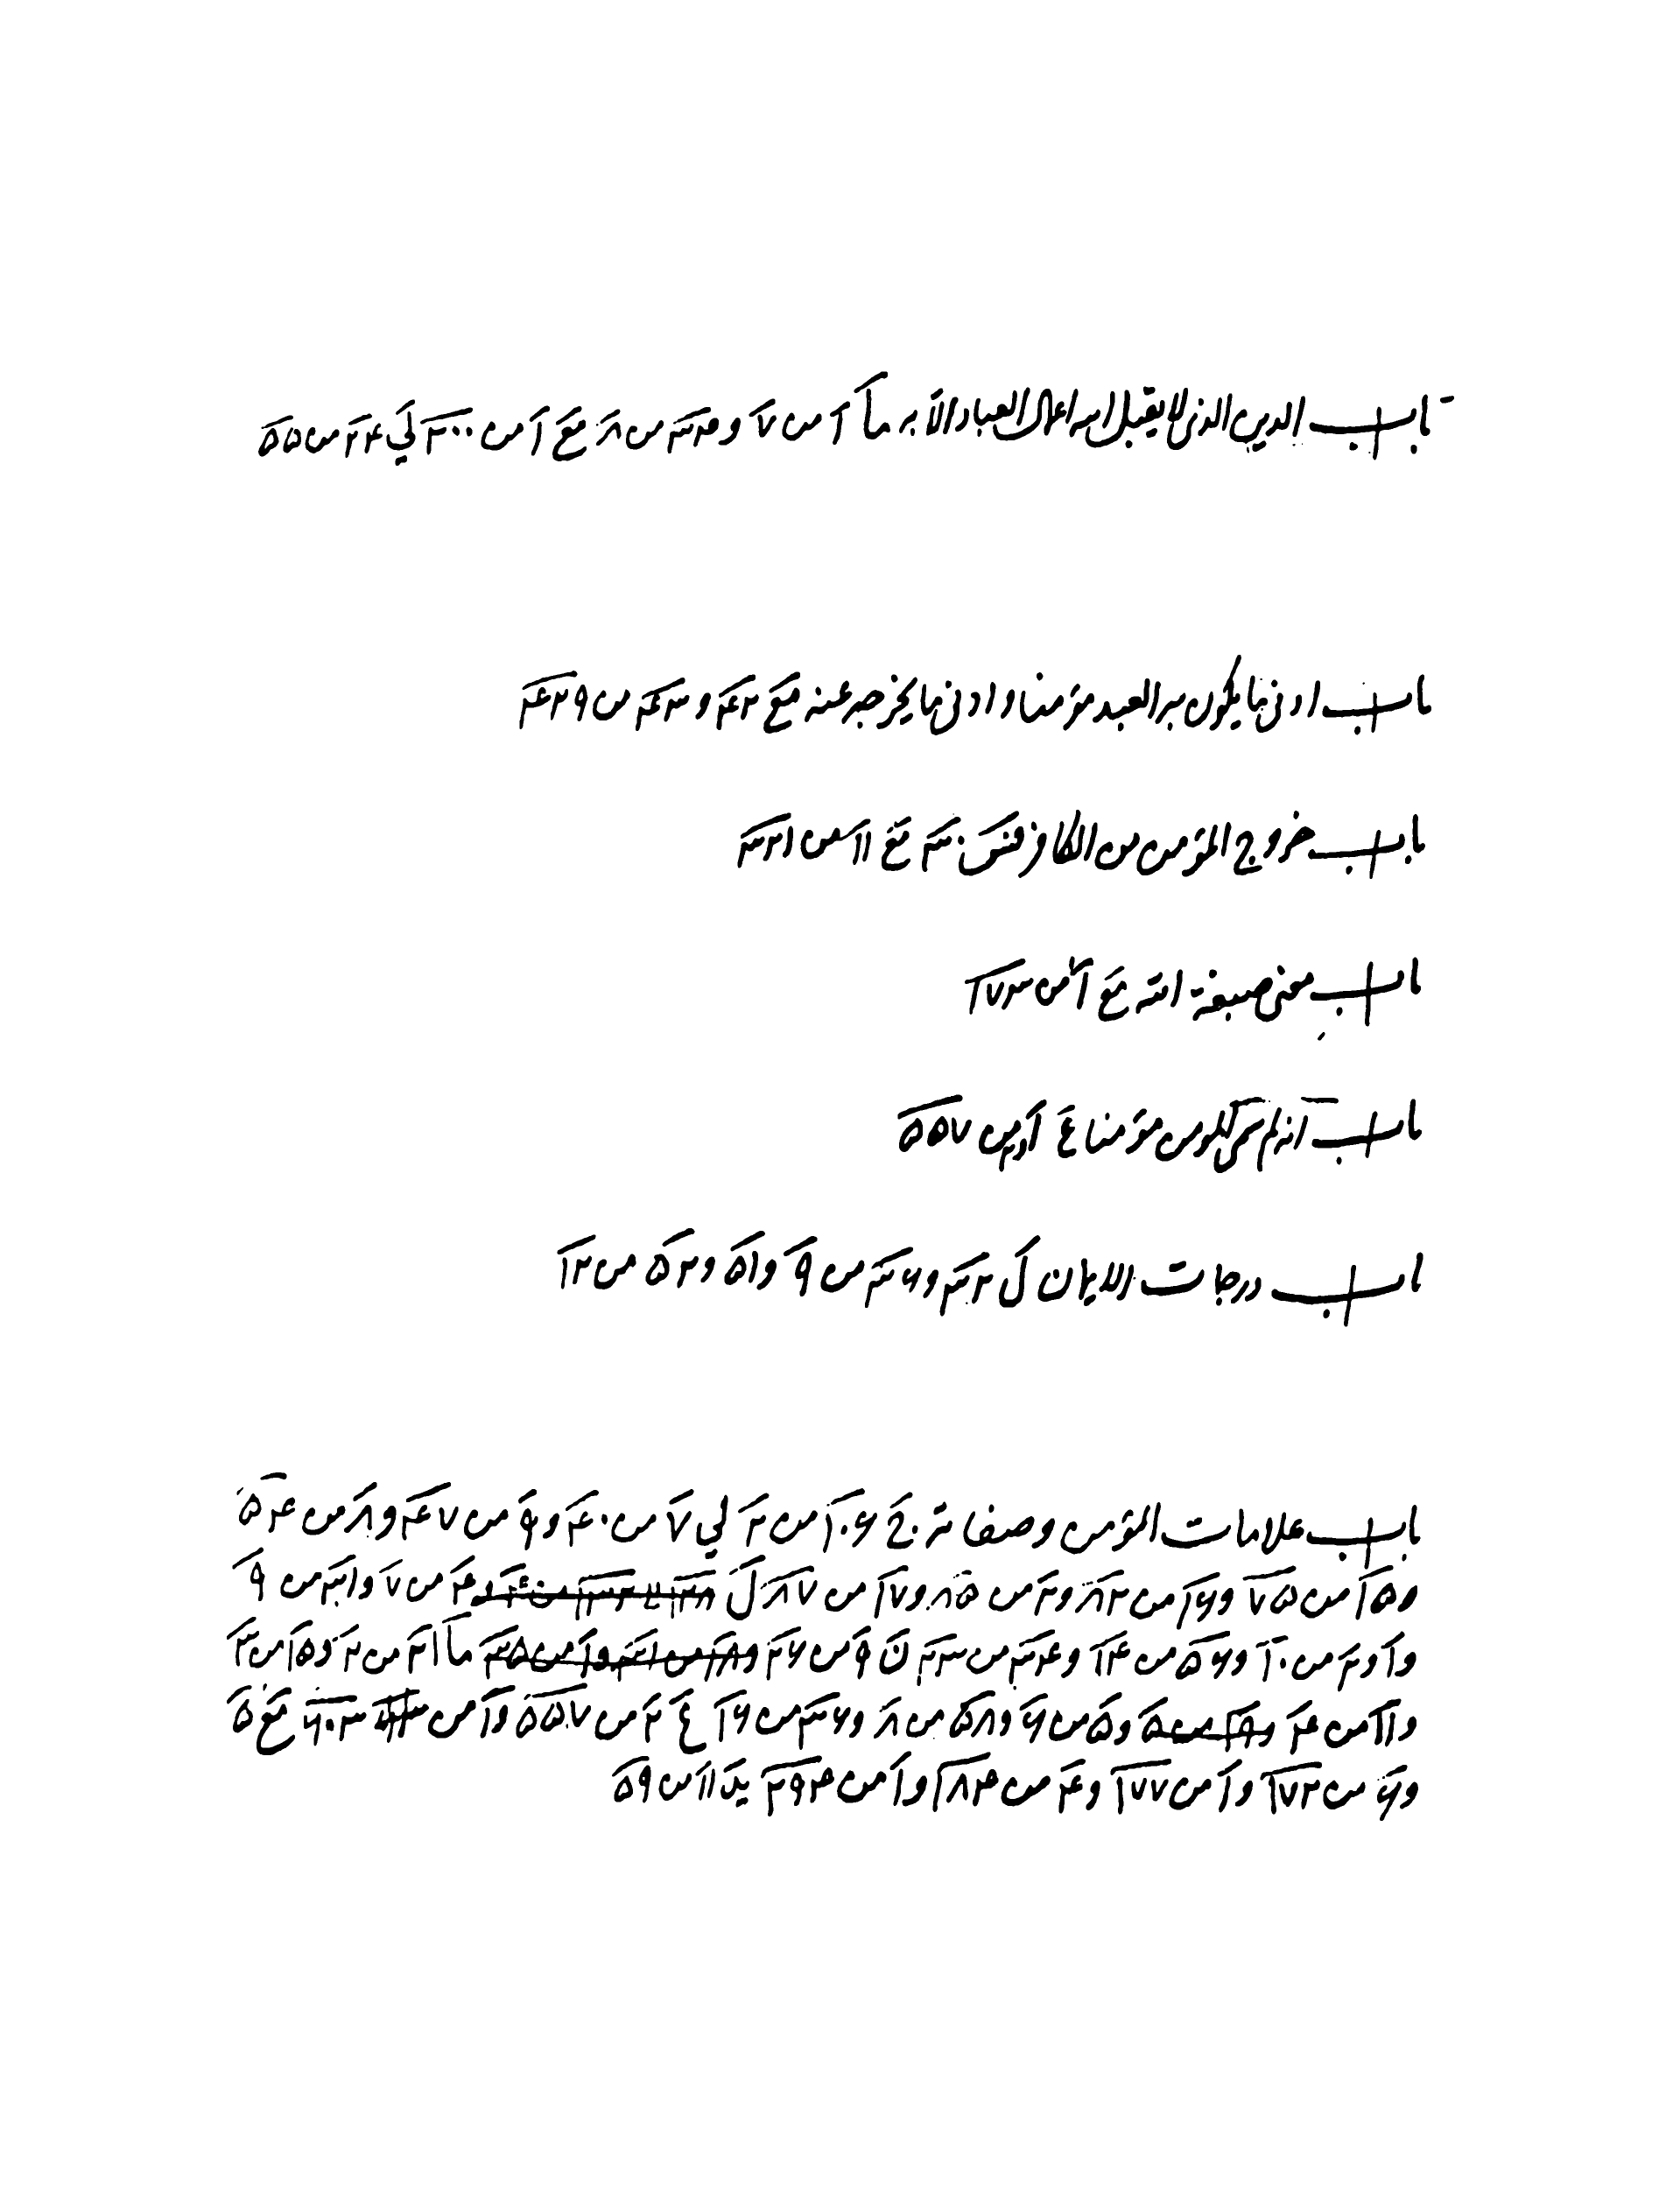 باب الدين الذي لا يقبل الله اعمال العباد الا به ما ٢ من ٧ و ٣٣ من ٨ مع ١ من ٣٠٠ لي ٢٤ من ٥٥
باب ادنى ما يكون به العبد مؤمنا و ادنى ما يخرجه عنه مع ٤٢ و ٤٣ من ٤٢٩
باب خروج المؤمن من الكافر مع ١١ من ٣٢١
باب معنى صبغة الله مع ١ من ٢٧٣
باب انه لم سمي المؤمن مؤمنا ع من ٥٥٧
باب درجات الايمان ل ٣٢ و ٣٦ من ٩ و ٥١ و ٥٢ من ١٢
باب علامات المؤمن و صفاته ج ١٠٦ من ٢ لي ٧ من ٤٠ و ٩ من ٤٧ و ٨ من ٥٤
و ١٥ من ٧٥ و ١٦ من ٨٢ و ٢ من ٨٥ و ١٧ من ٨٧ ل ٤ من ٧ و ٢١ من ٩
و ١ و ٢ من ١٠ و ٥٦ من ١٤ و ٣٤ من ٢٣ ن ٩ من ٢٦ ما ٢١ من ٢ و ١٥ من ٣
و ١١ من ٤ و ٥ من ٦ و ٥٨ من ٨ و ٣٦ من ١٦ ع ٢ من ٥٥٧ و ١ من ٦٠٣ مع ٥
و ٦ من ٢٧٢ و ١ من ٢٧٧ و ٤ من ٢٨٤ و ١ من ٢٩٤ يد ١١ من ٥٩